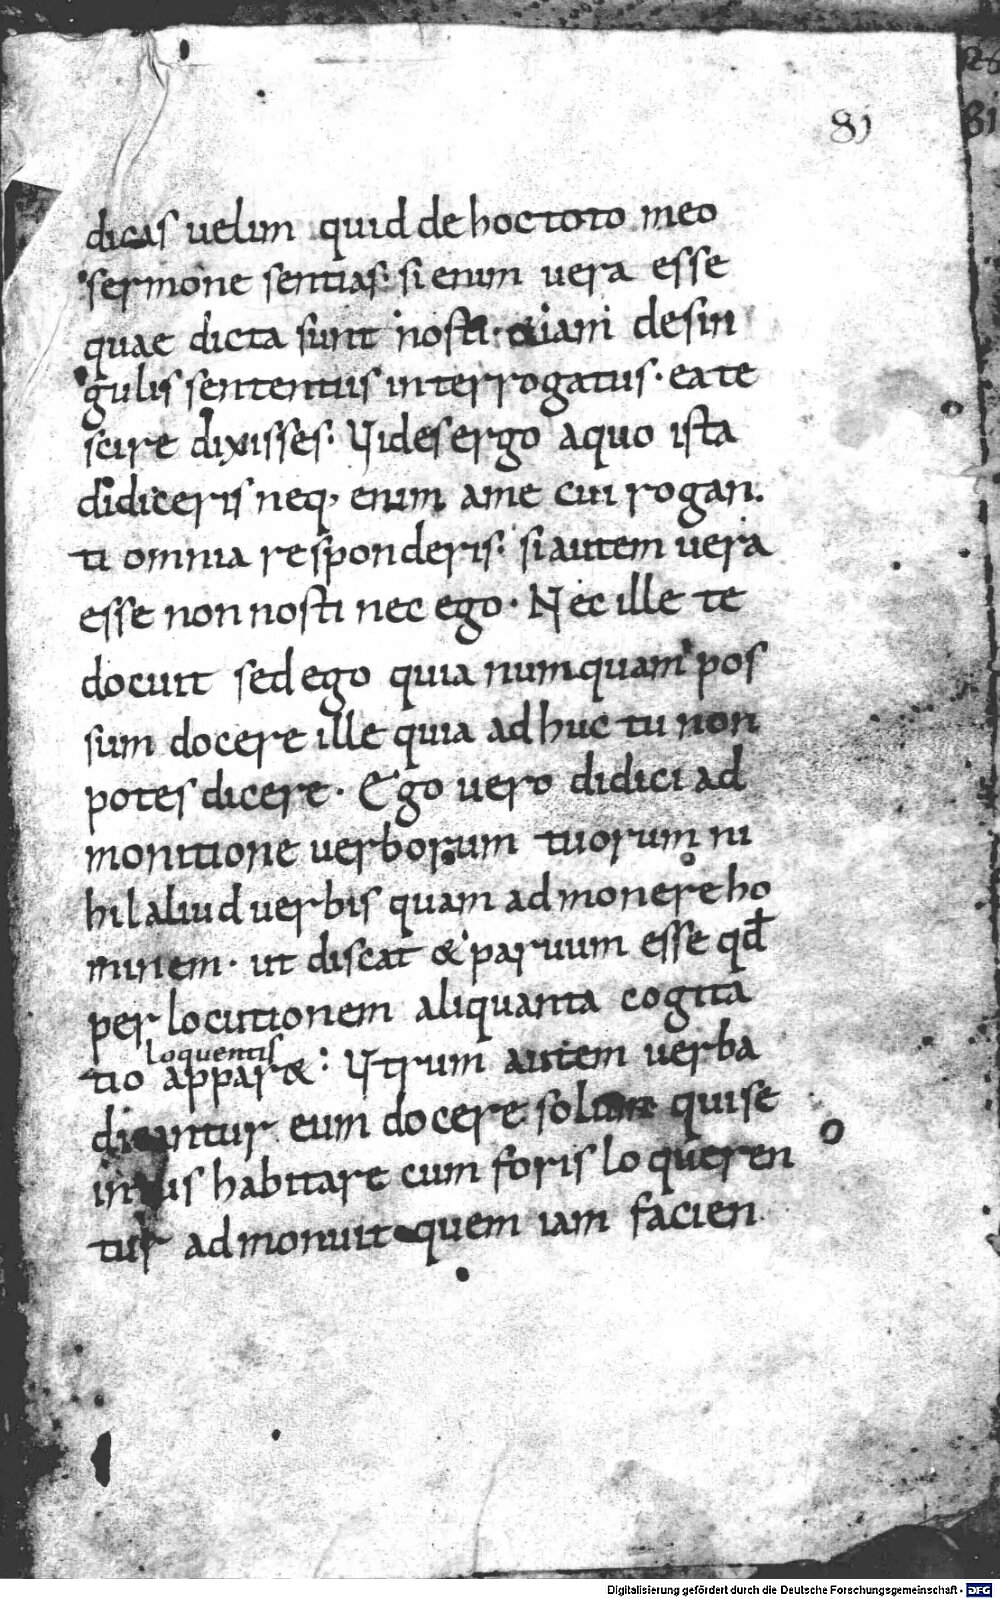 81
dicas uelim quid de hoc toto meo
sermone sentias· si enim uera esse
quae dicta sunt nosti· &iam desin
gulis sententiis interrogatus· ea te
scire dixisses· Uides ergo aquo ista
didiceris neq· enim ame cui rogan
ti omnia responderis· si autem uera
esse non nosti nec ego· Nec ille te
docuit sed ego quia numquam pos
sum docere ille quia adhuc tu non
potes dicere· Ego uero didici ad
monitione uerborum tuorum ni
hil aliud uerbis quam admonere ho
minem· ut discat & paruum esse qđ
per locutionem aliquanta cogita
loquentis
tio appar&· Utrum autem uerba
dicantur eum docere solum qui se
intus habitare cum foris loqueren
tur admonuit quem iam facien
Digitalisierung gefördert durch die Deutsche Forschungsgemeinschaft - DFG